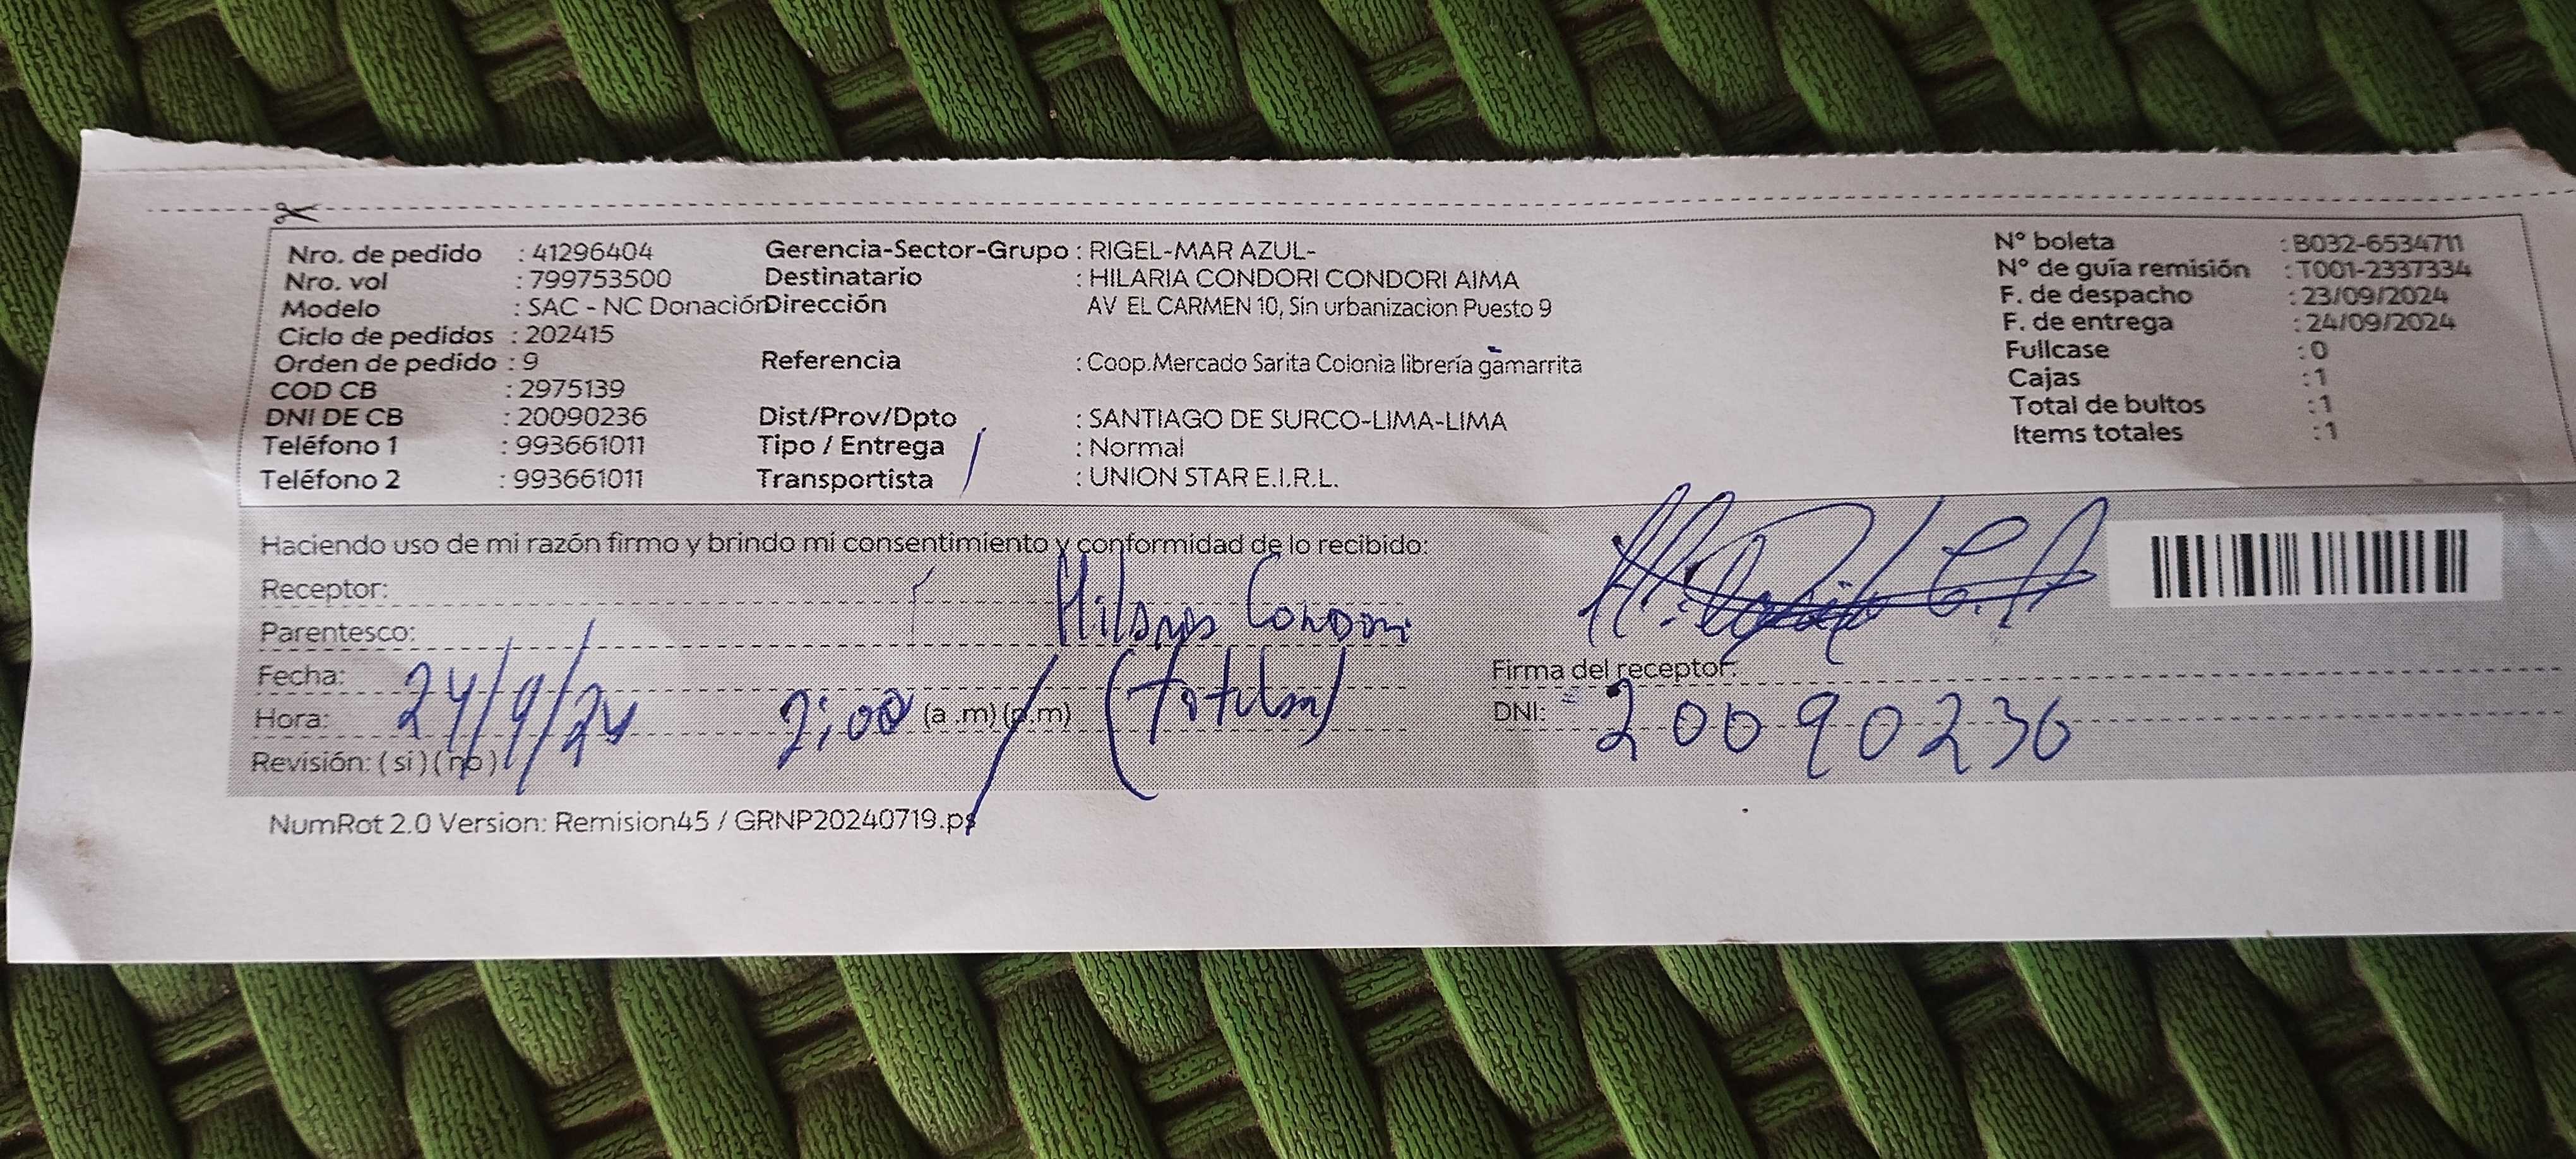 Nro. de pedido : 41296404 Gerencia-Sector-Grupo : RIGEL-MAR AZUL- N° boleta : B032-6534711
Nro. vol : 799753500 Destinatario : HILARIA CONDORI CONDORI AIMA N° de guía remisión : T001-2337334
Modelo : SAC - NC Donación Dirección AV EL CARMEN 10, Sin urbanizacion Puesto 9 F. de despacho : 23/09/2024
Ciclo de pedidos : 202415 F. de entrega : 24/09/2024
Orden de pedido : 9 Referencia : Coop.Mercado Sarita Colonia librería gamarrita Fullcase : 0
COD CB : 2975139 Cajas : 1
DNI DE CB : 20090236 Dist/Prov/Dpto : SANTIAGO DE SURCO-LIMA-LIMA Total de bultos : 1
Teléfono 1 : 993661011 Tipo / Entrega : Normal Items totales : 1
Teléfono 2 : 993661011 Transportista : UNION STAR E.I.R.L.
Haciendo uso de mi razón firmo y brindo mi consentimiento y conformidad de lo recibido:
Receptor: Hilaria Condori
Parentesco:
Fecha: 24/9/24 Firma del receptor:
Hora: 2:00 (a .m) (p.m) (Titular) DNI: 20090236
Revisión: ( si ) ( no )
NumRot 2.0 Version: Remision45 / GRNP20240719.ps